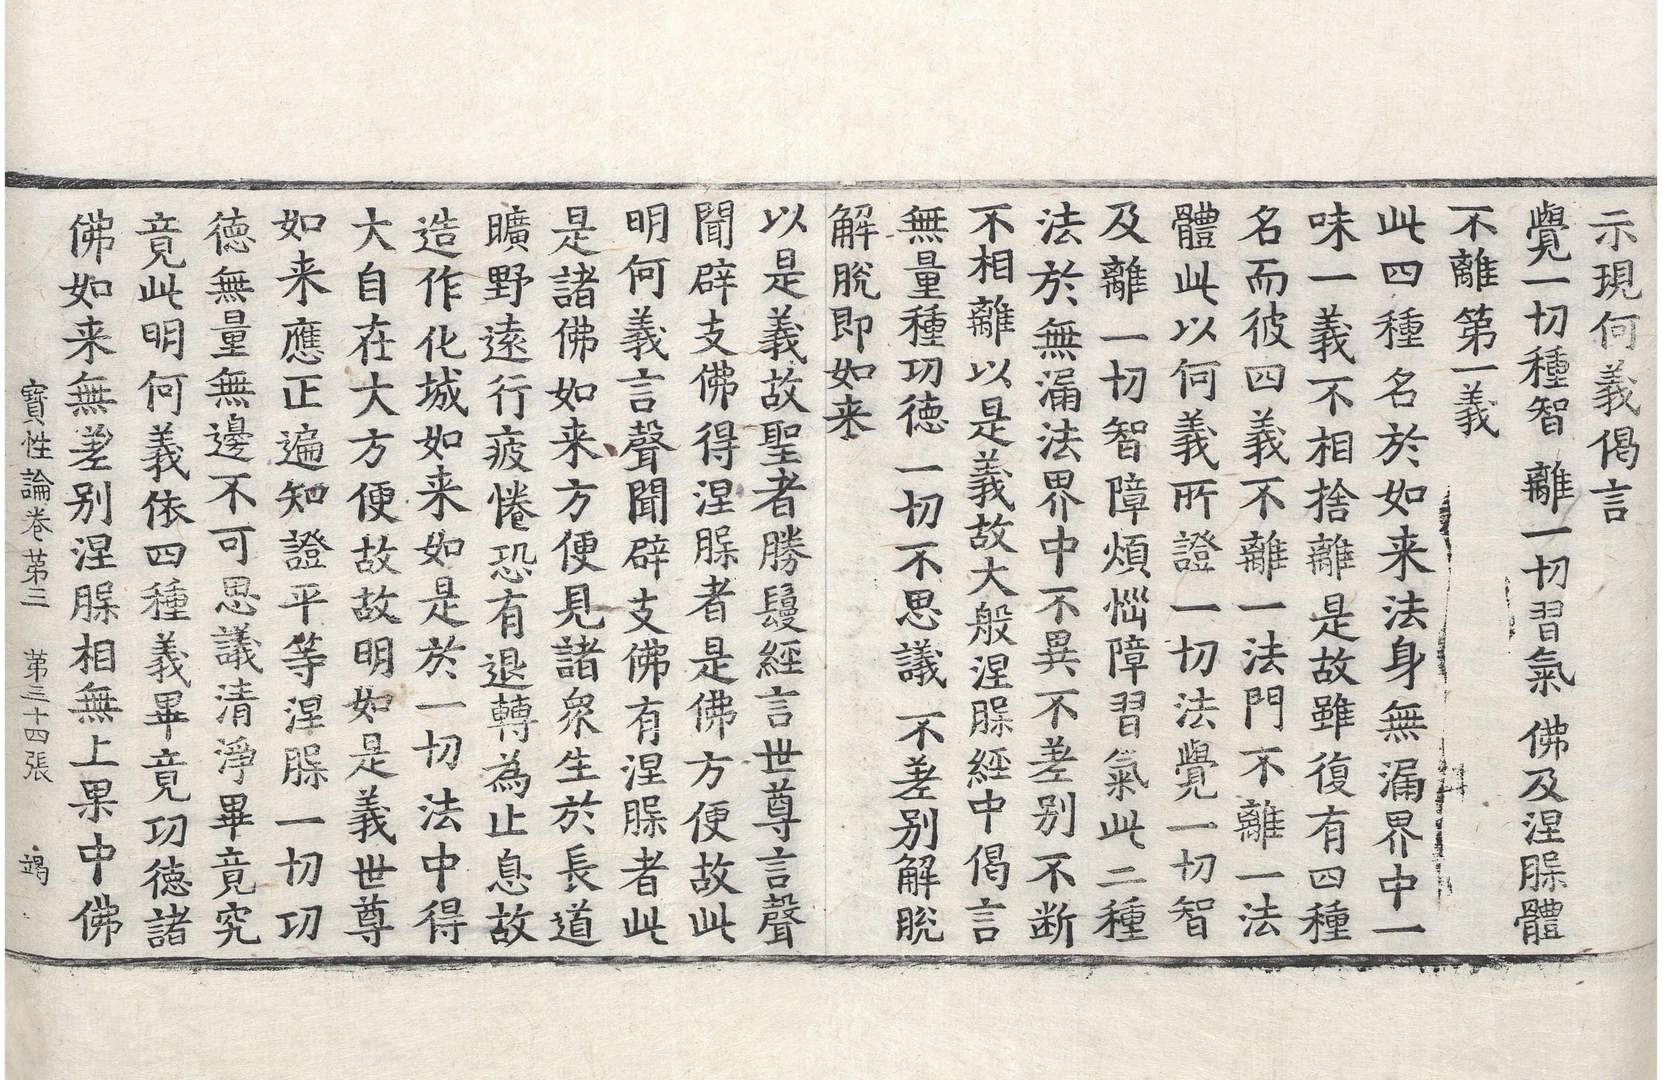 示現何義偈言
覺一切種智 離一切習氣 佛及涅槃體
不離第一義
此四種名於如来法身無漏界中一
味一義不相捨離是故雖復有四種
名而彼四義不離一法門不離一法
體此以何義所證一切法覺一切智
及離一切智障煩惱障習氣此二種
法於無漏法界中不異不差别不断
不相離以是義故大般涅槃經中偈言
無量種功德 一切不思議 不差别解脫
解脫即如来
以是義故聖者勝鬘經言世尊言聲
聞辟支佛得涅槃者是佛方便故此
明何義言聲聞辟支佛有涅槃者此
是諸佛如来方便見諸衆生於長道
曠野遠行疲惓恐有退轉為止息故
造作化城如来如是於一切法中得
大自在大方便故故明如是義世尊
如来應正遍知證平等涅槃一切功
德無量無邊不可思議清淨畢竟究
竟此明何義依四種義畢竟功德諸
佛如来無差别涅槃相無上果中佛
寶性論卷第三 第三十四張 竭